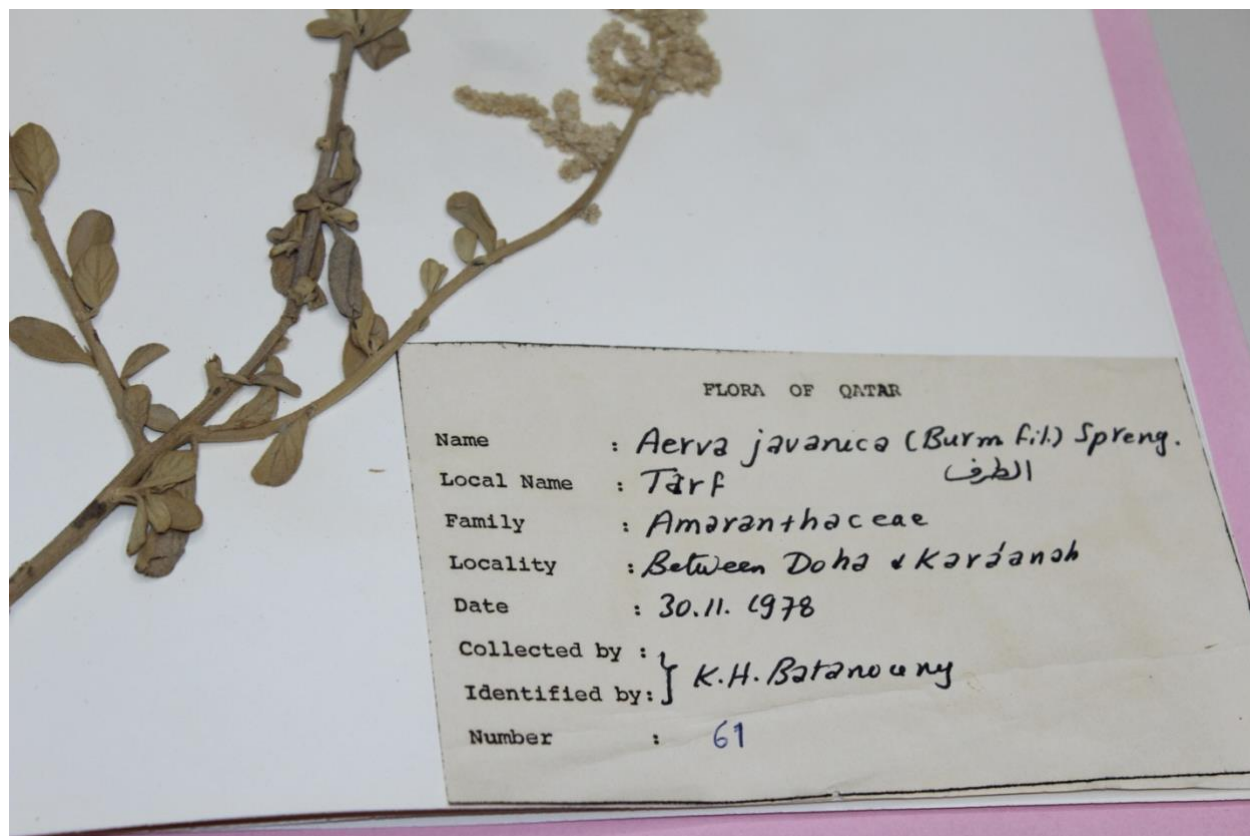 FLORA OF QATAR
Name : Aerva javanica (Burm fil.) Spreng.
Local Name : Tarf الطرف
Family : Amaranthaceae
Locality : Between Doha & Karáanah
Date : 30.11.1978
Collected by :
Identified by: } K.H. Batanouny
Number : 61